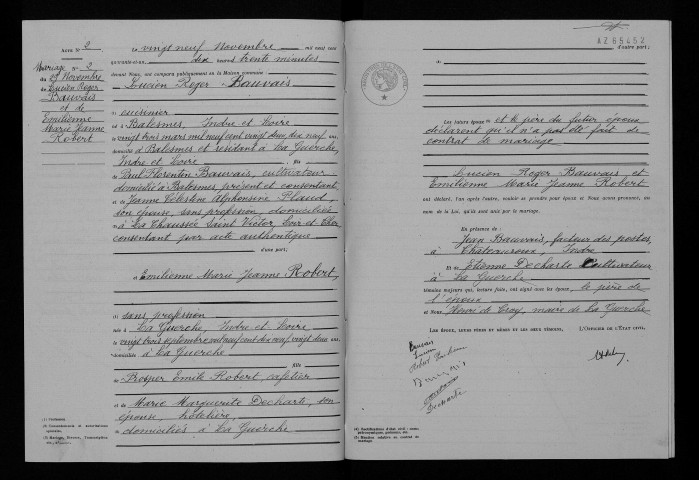 Acte N° 2
Mariage N° 2
du 29 Novembre
de Lucien Roger
Bauvais
et de
Emilienne
Marie Jeanne
Robert
Le vingt neuf Novembre mil neuf cent
quarante et un dix heures trente minutes
devant Nous, ont comparu publiquement en la Maison commune
Lucien Roger Bauvais
cuisinier
né à Balesmes, Indre et Loire
le vingt trois mars mil neuf cent vingt deux, dix neuf ans,
domicilié à Balesmes et résidant à La Guerche,
Indre et Loire, fils
de Paul Florentin Bauvais, cultivateur
domicilié à Balesmes, présent et consentant,
et de Jeanne Célestine Alphonsine Plaud,
son épouse, sans profession, domiciliée
à La Chaussée Saint Victor, Loir et Cher
consentant par acte authentique
d'une part;
et Emilienne Marie Jeanne Robert,
(1) sans profession
née à La Guerche, Indre et Loire
le vingt trois septembre mil neuf cent vingt deux ans,
domiciliée à La Guerche
fille
de Prosper Emile Robert, cafetier
et de Marie Marguerite Decharte, son
épouse, hôtelière,
domiciliés à La Guerche
(1) Profession
(2) Consentement et autorisations
AZ 65452
d'autre part;
Les futurs époux et le père du futur époux
déclarent qu'il n'a pas été fait de
contrat de mariage
Lucien Roger Bauvais et
Emilienne Marie Jeanne Robert
ont déclaré, l'un après l'autre, vouloir se prendre pour époux et Nous avons prononcé, au
nom de la Loi, qu'ils sont unis par le mariage.
En présence de :
Jean Bauvais, facteur des postes,
à Châteauroux, Indre
Et de Etienne Decharte cultivateur
à La Guerche
témoins majeurs qui, lecture faite, ont signé avec les époux, le père de
l'époux
et Nous, Henri de Croy, maire de La Guerche
Les époux, leurs pères et mères et les deux témoins,
L'Officier de l'État civil,
Bauvais
Lucien
Robert
Decharte